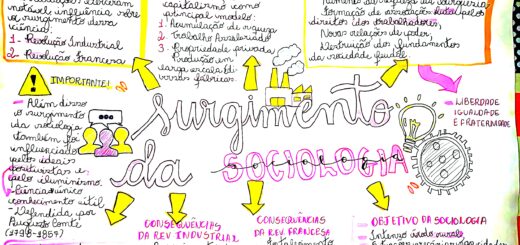 notável influência sobre
o surgimento dessa
ciência:
1 - Revolução Industrial
2 - Revolução Francesa
capitalismo como
principal modelo:
1. Acumulação de riqueza
2. Trabalho Assalariado
3. Propriedade privada
Produção em
larga escala di-
versas fábricas.
Formação de associação pelos
direitos dos trabalhadores
Novas relações de poder,
Destruição dos fundamentos
da sociedade feudal.
IMPORTANTE!
- Além disso
o surgimento
da sociologia
também foi
influenciado
pelos ideais
positivistas e
pelo iluminismo.
conhecimento útil
- Defendida por
Augusto Comte
(1798-1857)
surgimento
da SOCIOLOGIA
- LIBERDADE
IGUALDADE
E FRATERNIDADE
CONSEQUÊNCIAS
DA REV. INDUSTRIAL
CONSEQUÊNCIAS
DA REV. FRANCESA
- OBJETIVO DA SOCIOLOGIA
- Intenso êxodo rural